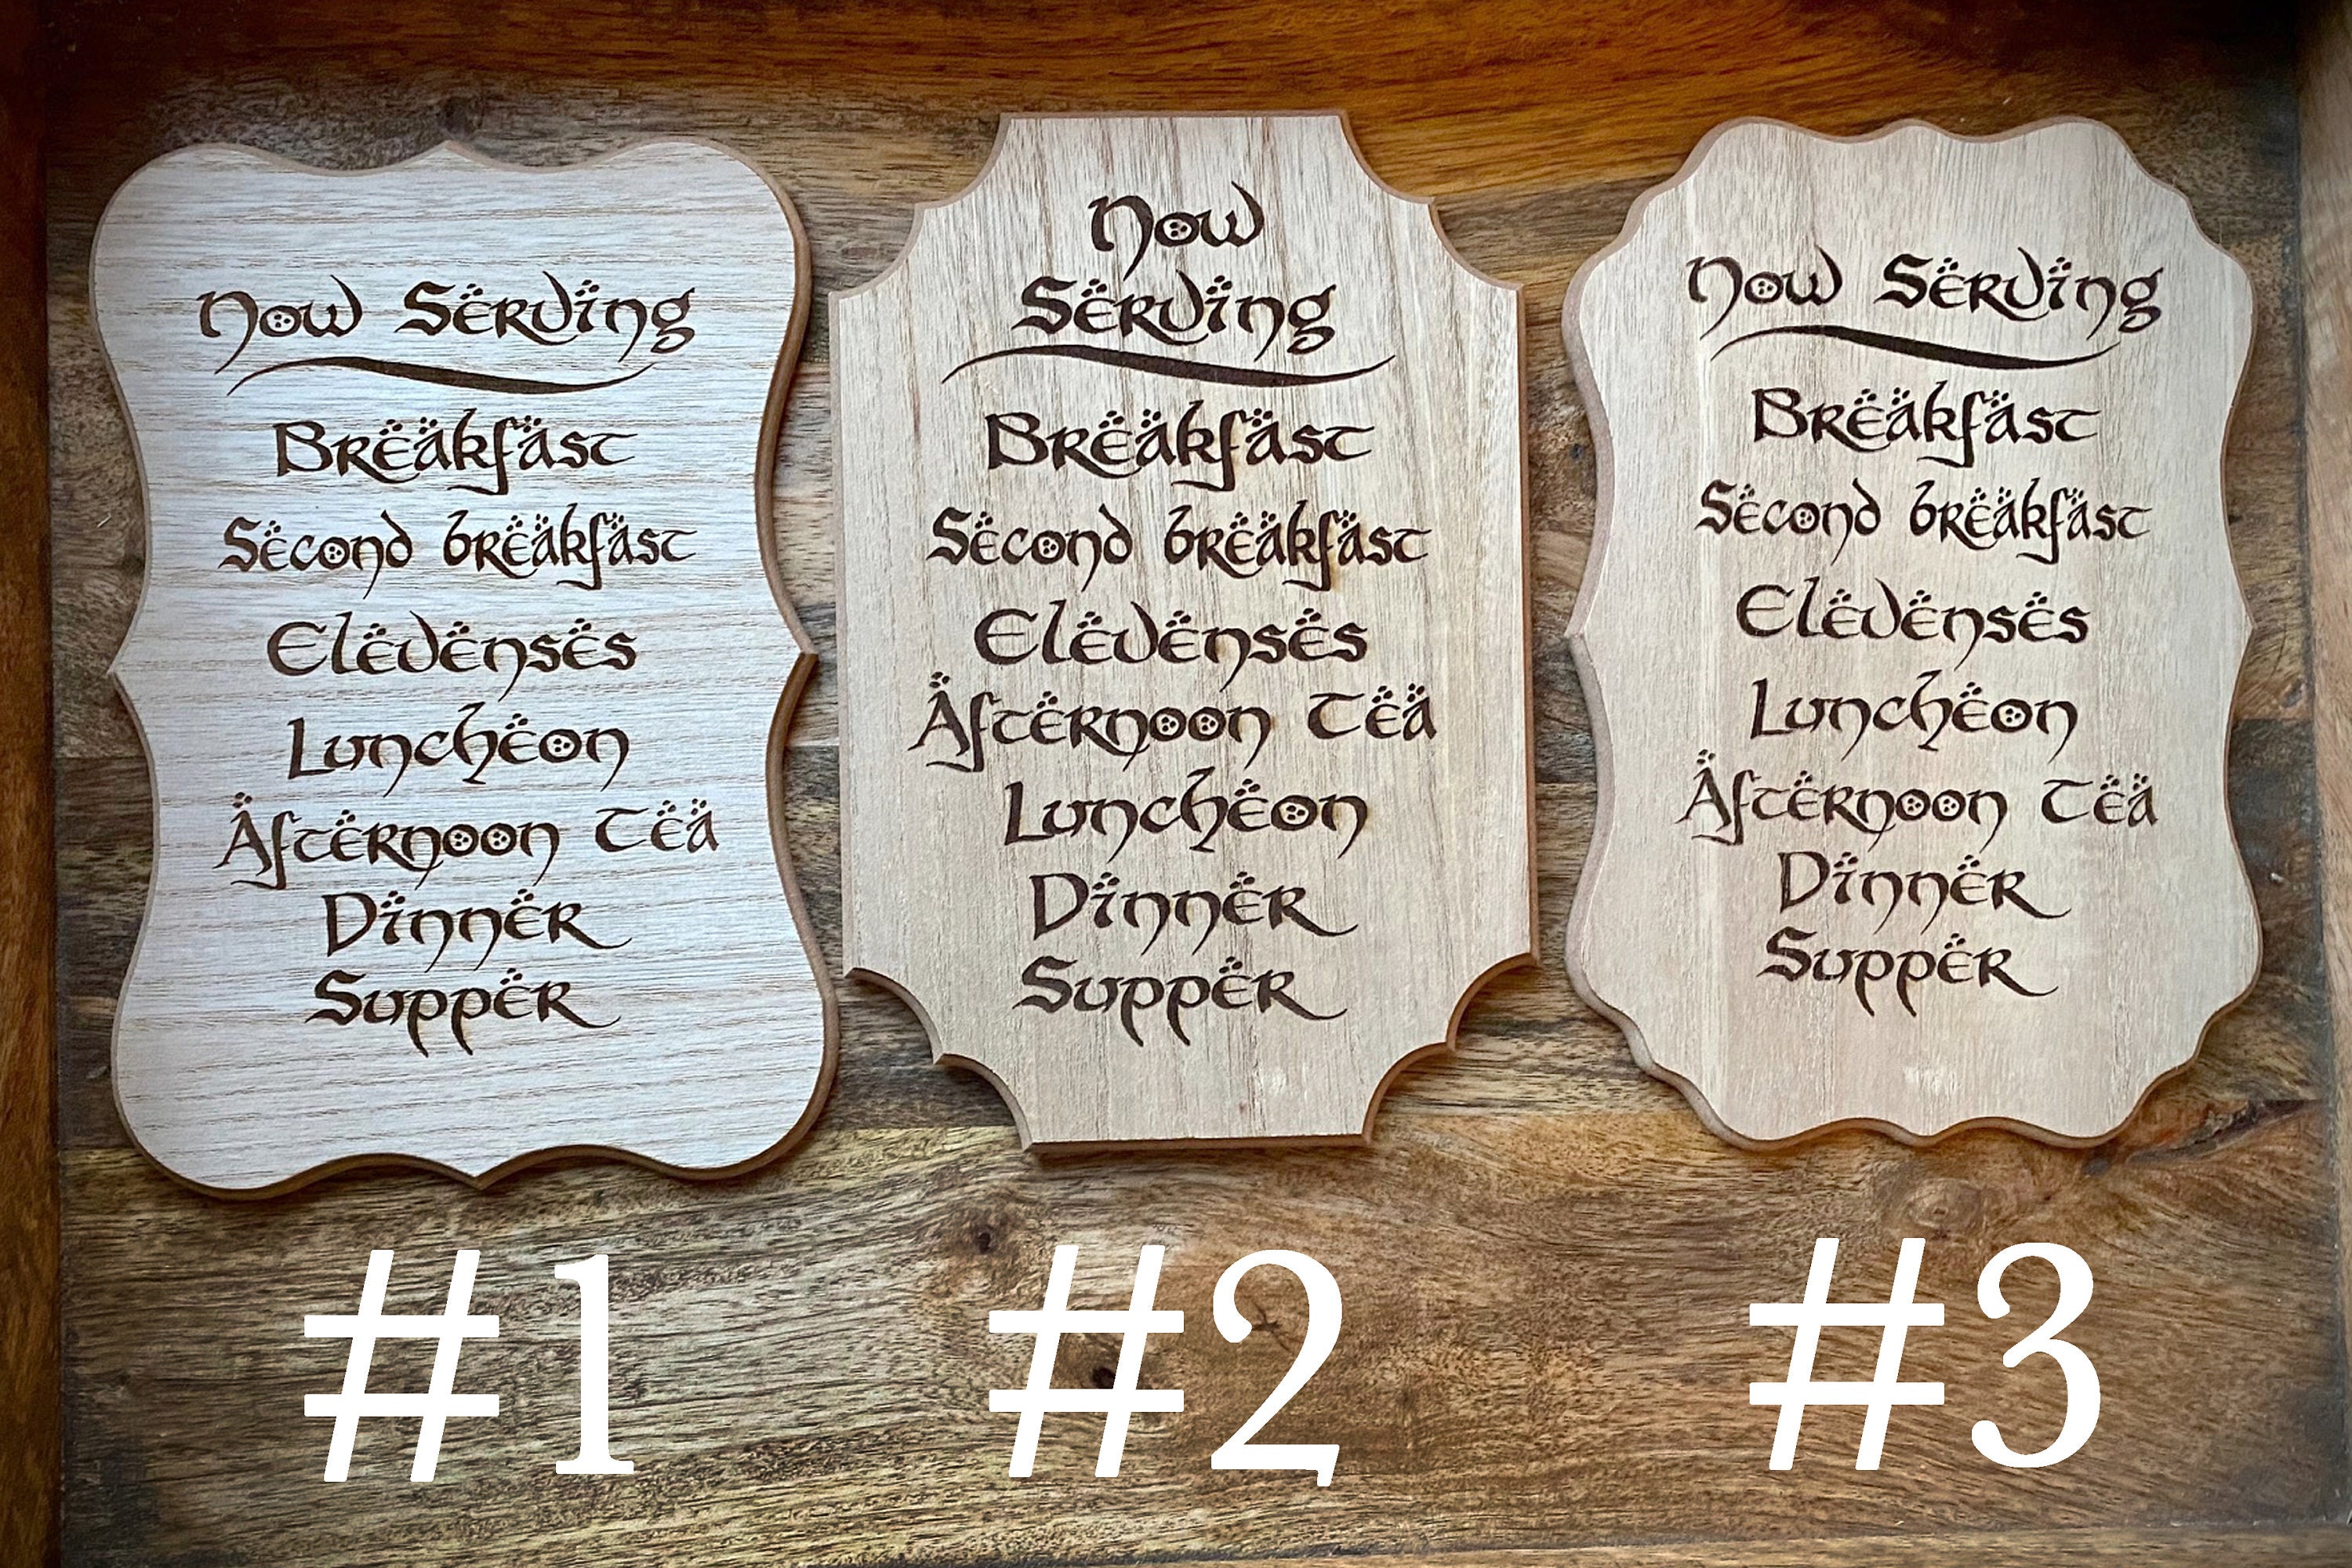 Now Serving
Breakfast
Second breakfast
Elevenses
Luncheon
Afternoon Tea
Dinner
Supper
Now
Serving
Breakfast
Second breakfast
Elevenses
Afternoon Tea
Luncheon
Dinner
Supper
Now Serving
Breakfast
Second breakfast
Elevenses
Luncheon
Afternoon Tea
Dinner
Supper
#1
#2
#3